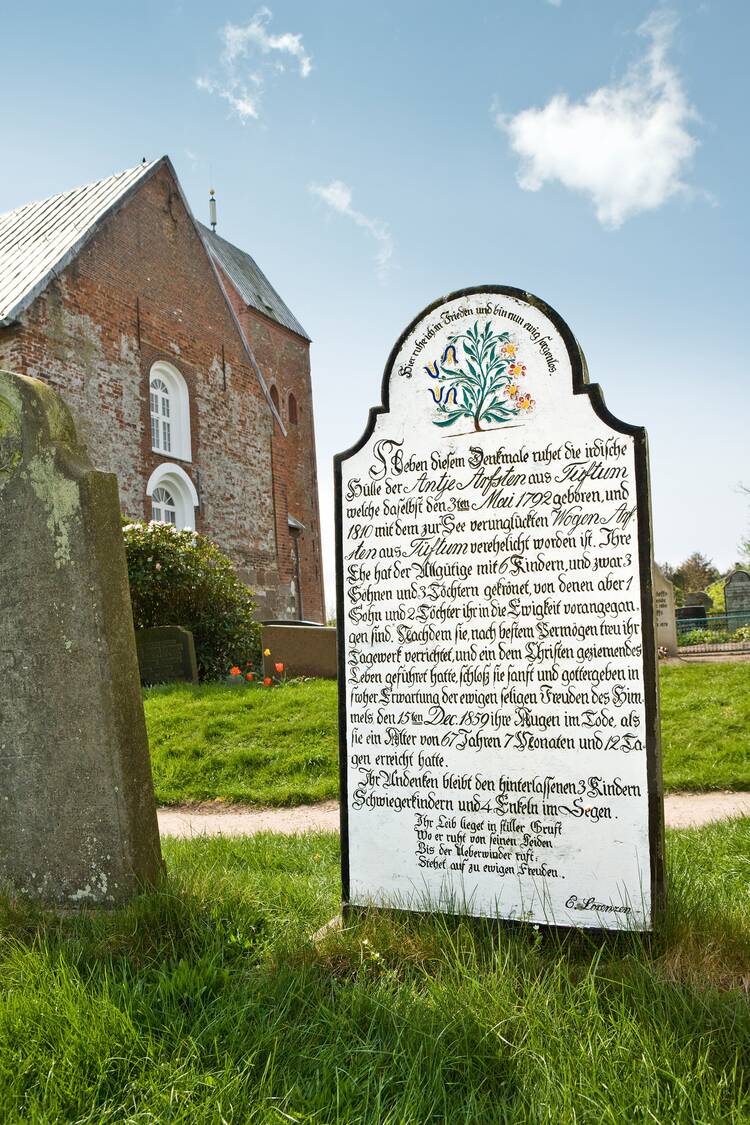 Hier ruhe ich in Frieden und bin nun ewig sorgenlos.
Neben diesem Denkmale ruhet die irdische
Hülle der Antje Arfsten aus Tüftum
welche daselbst den 3ten Mai 1792 geboren, und
1810 mit dem zur See verunglückten Wogen Arf
sten aus Tüftum verehelicht worden ist. Ihre
Ehe hat der Allgütige mit 6 Kindern, und zwar 3
Söhnen und 3 Töchtern gekrönet, von denen aber 1
Sohn und 2 Töchter ihr in die Ewigkeit vorangegan,
gen sind. Nachdem sie, nach bestem Vermögen treu ihr
Tagewerk verrichtet, und ein dem Christen geziemendes
Leben geführet hatte, schloß sie sanft und gottergeben in
froher Erwartung der ewigen seligen Freuden des Him
mels den 15ten Dec. 1859 ihre Augen im Tode, als
sie ein Alter von 67 Jahren 7 Monaten und 12 Ta
gen erreicht hatte.
Ihr Andenken bleibt den hinterlassenen 3 Kindern
Schwiegerkindern und 4 Enkeln im Segen.
Ihr Leib lieget in stiller Gruft
Wo er ruht von seinen Leiden
Bis der Ueberwinder ruft:
Stehet auf zu ewigen Freuden.
C. Lorenzen